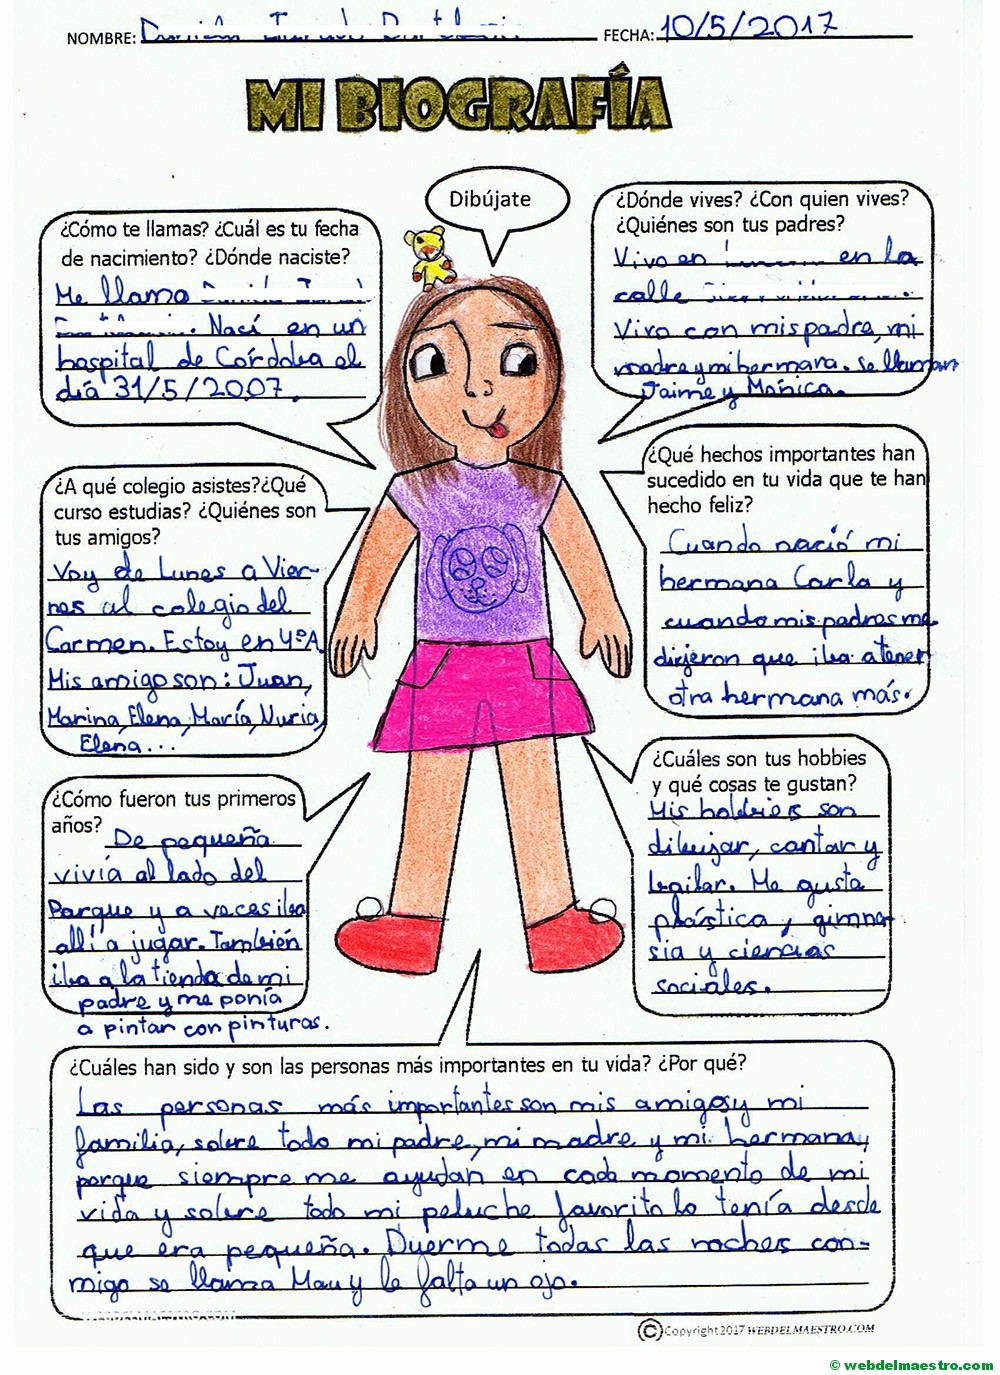 NOMBRE: FECHA: 10/5/2017
MI BIOGRAFÍA
Dibújate
¿Cómo te llamas? ¿Cuál es tu fecha
de nacimiento? ¿Dónde naciste?
Me llamo
. Nací en un
hospital de Córdoba el
día 31/5/2007.
¿Dónde vives? ¿Con quien vives?
¿Quiénes son tus padres?
Vivo en en la
calle .
Vivo con mis padre, mi
madre y mi hermana. Se llaman
Jaime y Mónica.
¿A qué colegio asistes?¿Qué
curso estudias? ¿Quiénes son
tus amigos?
Voy de Lunes a Vier-
nes al colegio del
Carmen. Estoy en 4ºA
Mis amigo son: Juan,
Marina, Elena, María, Nuria,
Elena...
¿Qué hechos importantes han
sucedido en tu vida que te han
hecho feliz?
Cuando nació mi
hermana Carla y
cuando mis padres me
dijeron que iba a tener
otra hermana más.
¿Cómo fueron tus primeros
años? De pequeña
vivía al lado del
Parque y a veces iba
allí a jugar. También
iba a la tienda de mi
padre y me ponía
a pintar con pinturas.
¿Cuáles son tus hobbies
y qué cosas te gustan?
Mis hobbies son
dibujar, cantar y
bailar. Me gusta
plástica y gimna
sia y ciencias
sociales.
¿Cuáles han sido y son las personas más importantes en tu vida? ¿Por qué?
Las personas más importantes son mis amigos y mi
familia, sobre todo mi padre, mi madre y mi hermana,
porque siempre me ayudan en cada momento de mi
vida y sobre todo mi peluche favorito lo tenía desde
que era pequeña. Duerme todas las noches con-
migo se llama Mau y le falta un ojo.
WEBDELMAESTRO.COM
©Copyright 2017 WEBDELMAESTRO.COM
© webdelmaestro.com